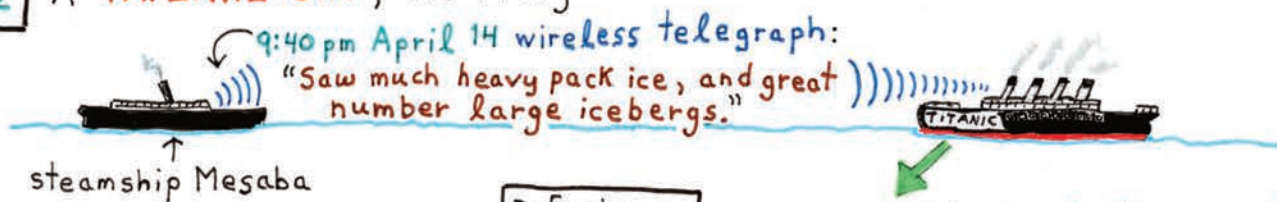 9:40 pm April 14 wireless telegraph:
"Saw much heavy pack ice, and great
number large icebergs."
TITANIC
steamship Mesaba